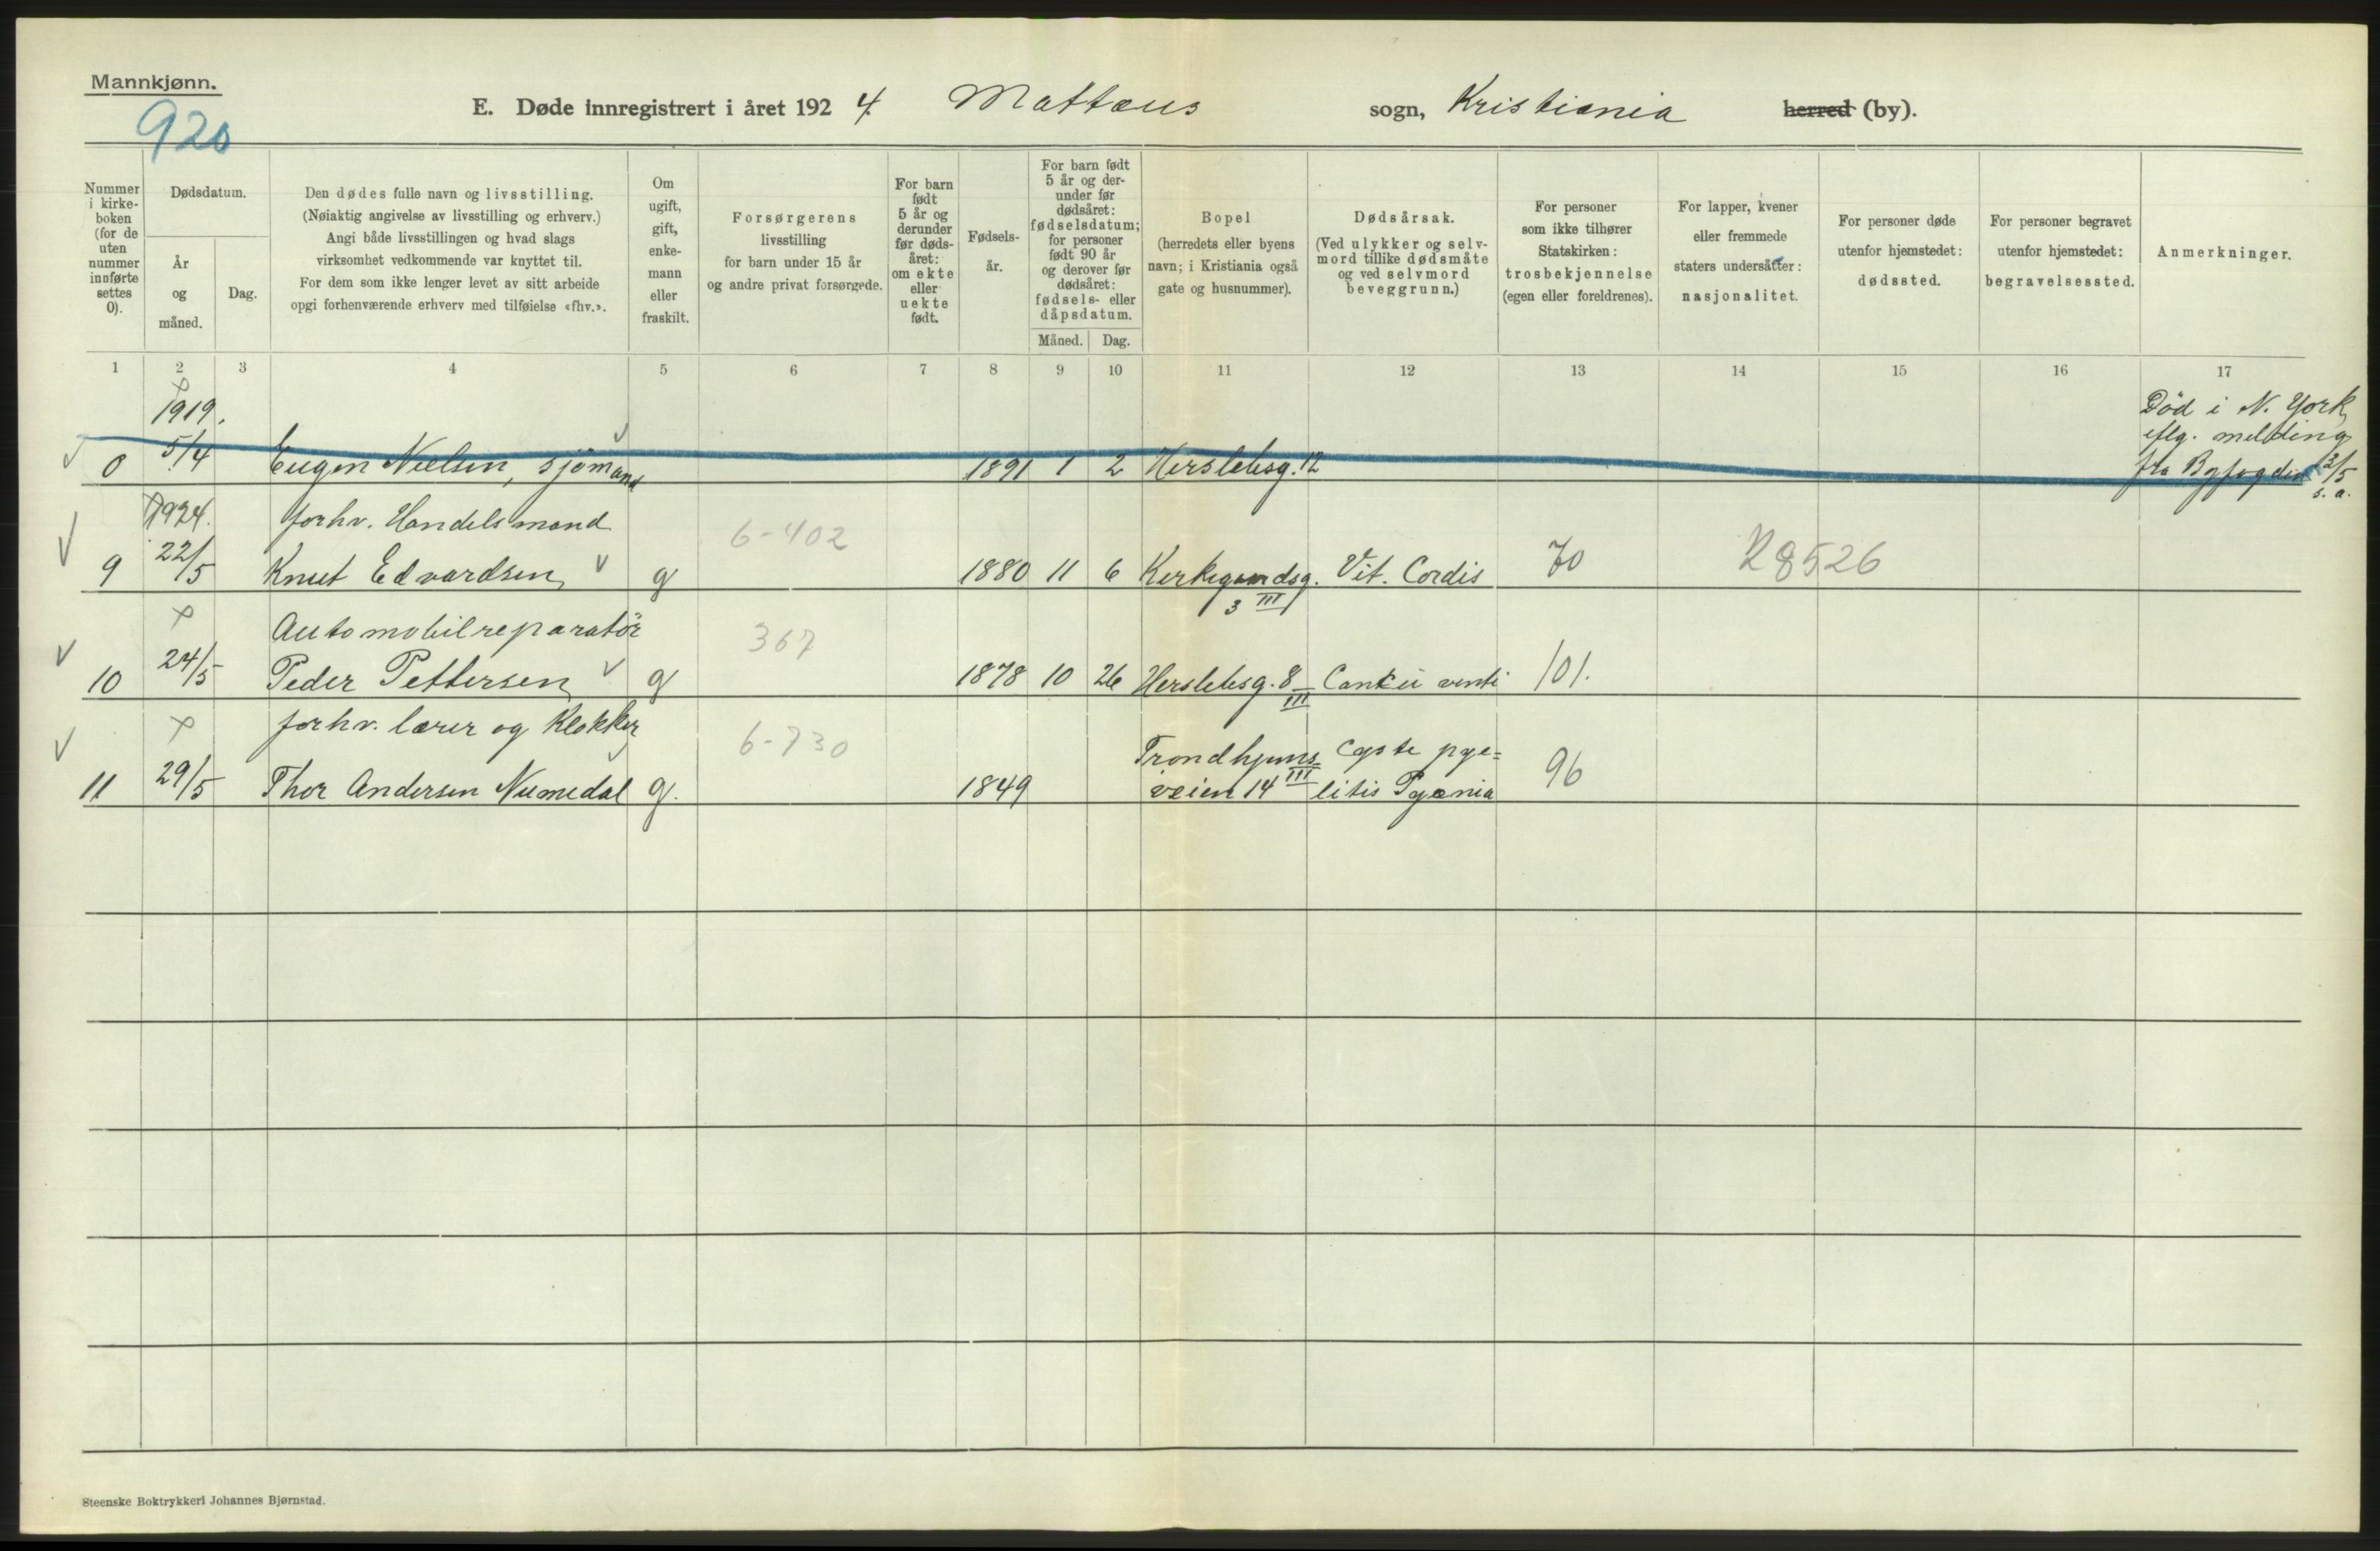 Mannkjønn.
920
E. Døde innregistrert i året 1924 Mattæus sogn, Kristiania herred (by).
Nummer i kirke- boken (for de uten nummer innførte settes 0).
Dødsdatum.
År og måned.
Dag.
Den dødes fulle navn og livsstilling.
(Nøiaktig angivelse av livsstilling og erhverv.)
Angi både livsstillingen og hvad slags
virksomhet vedkommende var knyttet til.
For dem som ikke lenger levet av sitt arbeide
opgi forhenværende erhverv med tilføielse «fhv.».
Om ugift, gift, enke- mann eller fraskilt.
Forsørgerens
livsstilling
for barn under 15 år
og andre privat forsørgede.
For barn født 5 år og derunder før døds- året: om ekte eller uekte født.
Fødsels- år.
For barn født 5 år og der- under før dødsåret: fødselsdatum; for personer født 90 år og derover før dødsåret: fødsels- eller dåpsdatum.
Måned. Dag.
Bopel
(herredets eller byens
navn; i Kristiania også
gate og husnummer).
Dødsårsak.
(Ved ulykker og selv-
mord tillike dødsmåte
og ved selvmord
beveggrunn.)
For personer
som ikke tilhører
Statskirken:
trosbekjennelse
(egen eller foreldrenes).
For lapper, kvener
eller fremmede
staters undersåtter:
nasjonalitet.
For personer døde
utenfor hjemstedet:
dødssted.
For personer begravet
utenfor hjemstedet:
begravelsessted.
Anmerkninger.
1 2 3 4 5 6 7 8 9 10 11 12 13 14 15 16 17
1919.
Død i N. York
eflg. melding
0 5/4 Eugen Nielsen, sjømand 1891 1 2 Herslebsg. 12 fra Byfogden 13/5
s. a.
1924. forhv. Handelsmand 6-402
9 22/5 Knut Edvardsen g 1880 11 6 Kirkegaardsg. Vit. Cordis 70 28526
3 III
Automobilreparatör 367
10 24/5 Peder Pettersen g 1878 10 26 Herslebsg. 8 III Cancer ventr. 101.
forhv. lærer og Klokker 6-730 Trondhjems- Cysto pye-
11 29/5 Thor Andersen Numedal g. 1849 veien 14 III litis Pyæmia 96
Steenske Boktrykkeri Johannes Bjørnstad.